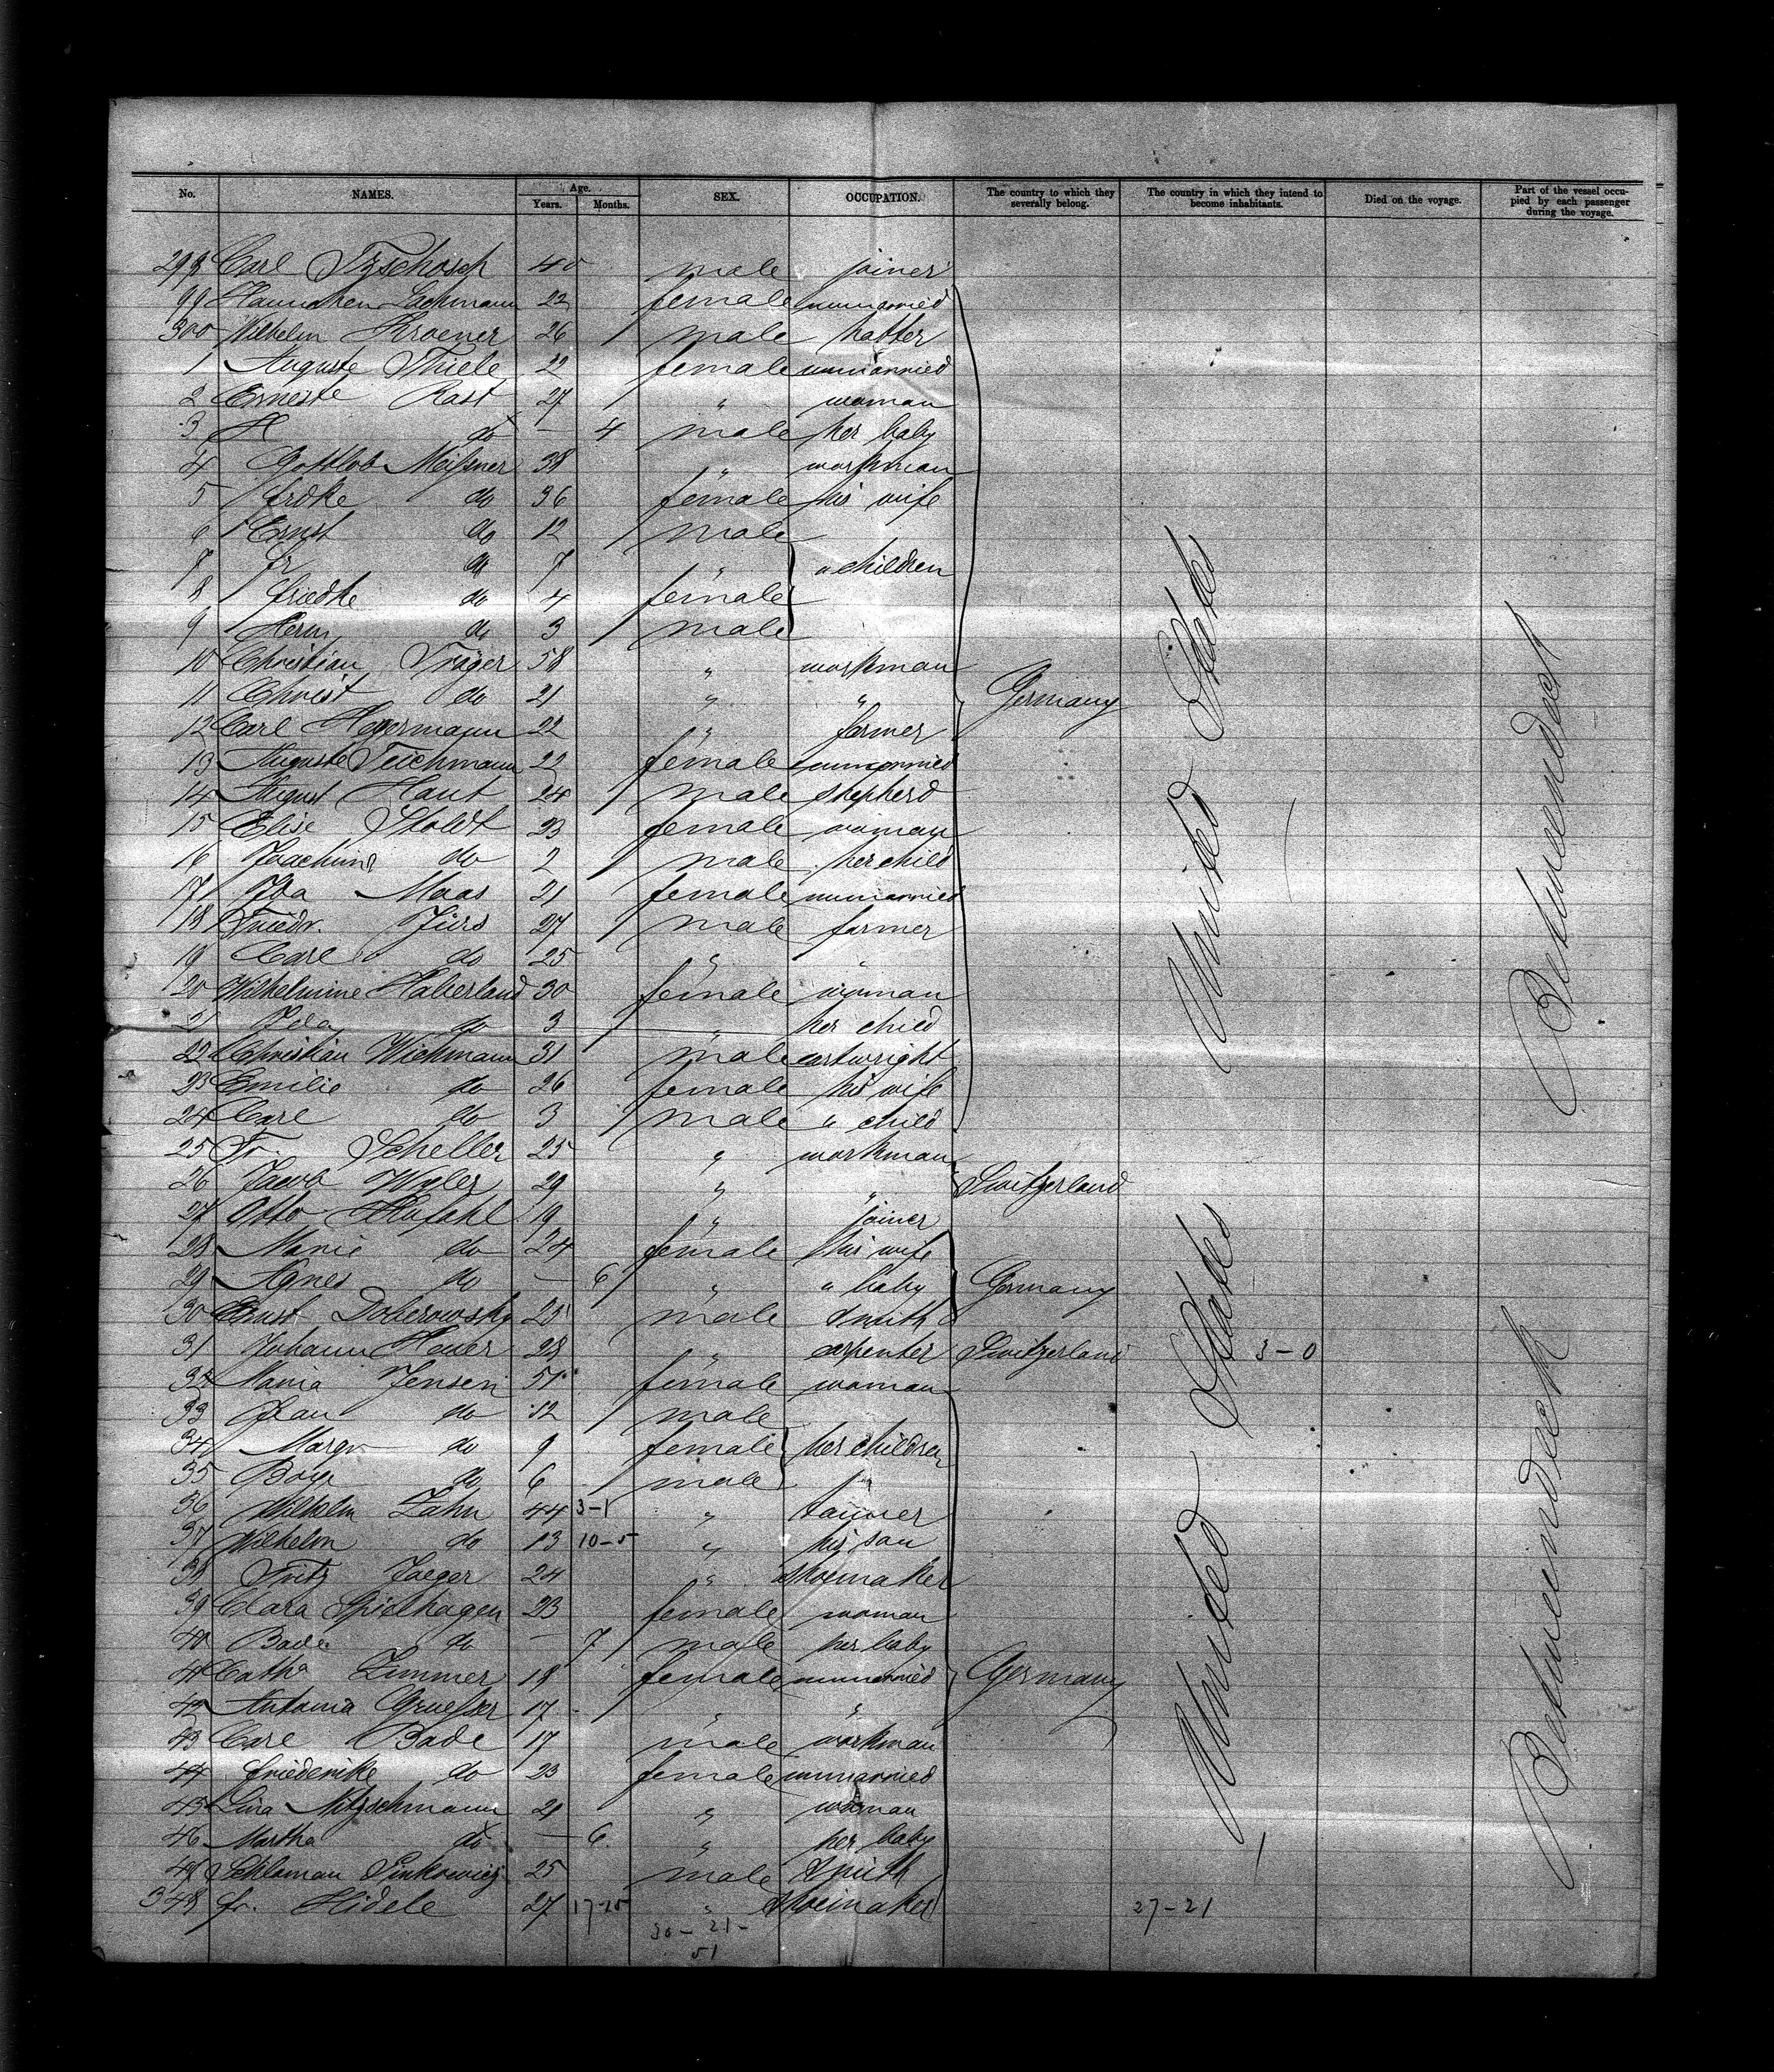 No. NAMES. Age. Years. Months. SEX. OCCUPATION. The country to which they severally belong. The country in which they intend to become inhabitants. Died on the voyage. Part of the vessel occupied by each passenger during the voyage.
298 Carl Tzschosch 40 male joiner
99 Hannchen Lachmann 22 female unmarried
300 Wilhelm Kroener 26 male hatter
1 Auguste Thiele 22 female unmarried
2 Erneste Rast 27 " woman
3 H do — 4 male her baby
4 Gottlob Meißner 38 " workman
5 Frdke do 36 female his wife
6 Ernst do 12 male
7 Fr do 7 " " children
8 Friedke do 4 female
9 Herm do 3 male
10 Christian Träger 58 " workman
11 Christ do 21 " " Germany
12 Carl Hegermann 22 " farmer
13 Auguste Teichmann 22 female unmarried
14 August Haut 24 male shepherd
15 Elise Stoldt 23 female woman
16 Joachim do 2 male her child
17 Ida Maas 21 female unmarried
18 Friedr. Jürs 27 male farmer
19 Carl do 25 " "
20 Wilhelmine Haberland 30 female woman
21 Ida do 3 " her child
22 Christian Wichmann 31 male cartwright
23 Emilie do 26 female his wife
24 Carl do 3 male " child
25 Fr. Scheller 25 " workman
26 Jacob Wyler 29 " " Switzerland
27 Otto Hufahl 19 " joiner
28 Marie do 24 female his wife
29 Agnes do — 6 " " baby Germany
30 Ernst Doberowsky 25 male smith
31 Johann Heuer 28 " carpenter Switzerland 3-0
32 Maria Jensen 51 female woman
33 Jean do 12 male
34 Margr do 9 female her children
35 Boye do 6 male "
36 Wilhelm Zahn 44 3-1 " tanner
37 Wilhelm do 13 10-5 " his son
38 Fritz Jaeger 24 " shoemaker
39 Clara Spielhagen 23 female woman
40 Bade do — 7 male her baby
41 Catha Zimmer 18 female unmarried Germany
42 Antonia Gruesser 17 " "
43 Carl Bade 17 male workman
44 Friederike do 23 female unmarried
45 Lina Nitzschmann 21 " woman
46 Martha do — 6 " her baby
47 Schloman Pinkowicz 25 male smith
348 Fr. Hidele 27 17-25 " shoemaker 27-21
30-21-
51
United States
United States
Betweendeck
Betweendeck